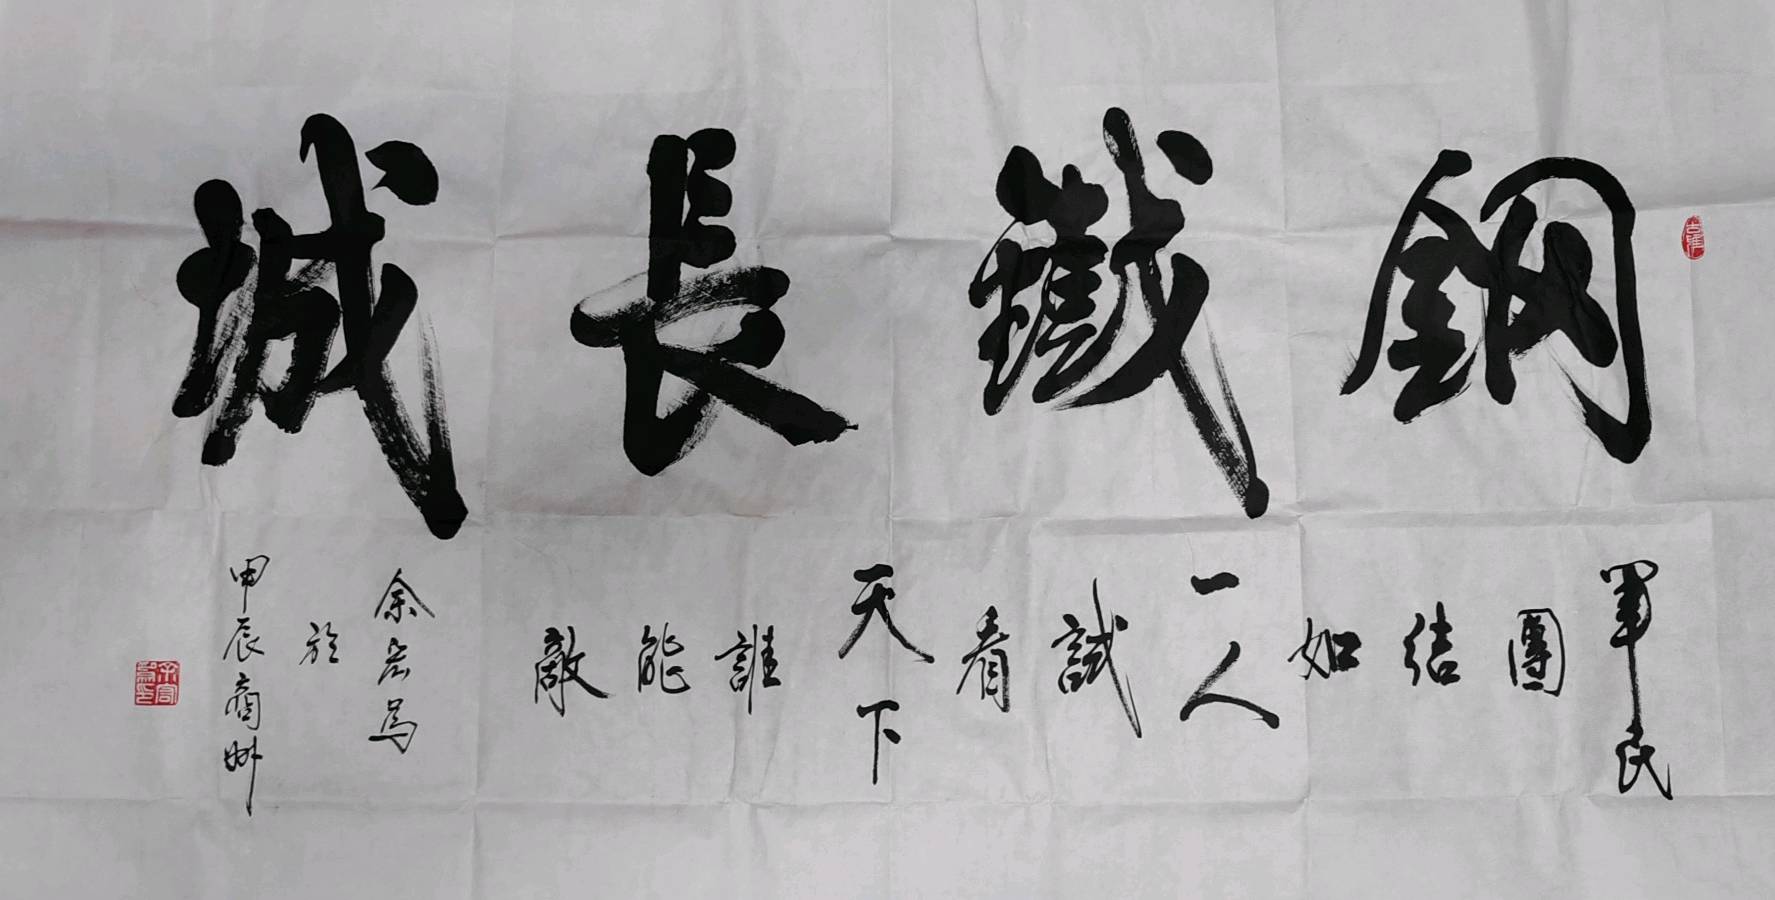 鋼鐵長城
軍民
團
結
如
一人
試
看
天下
誰
能
敵
余宏為
於
甲辰商州